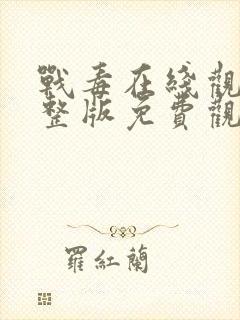 戰毒在綫觀
整版免費觀
羅紅蘭